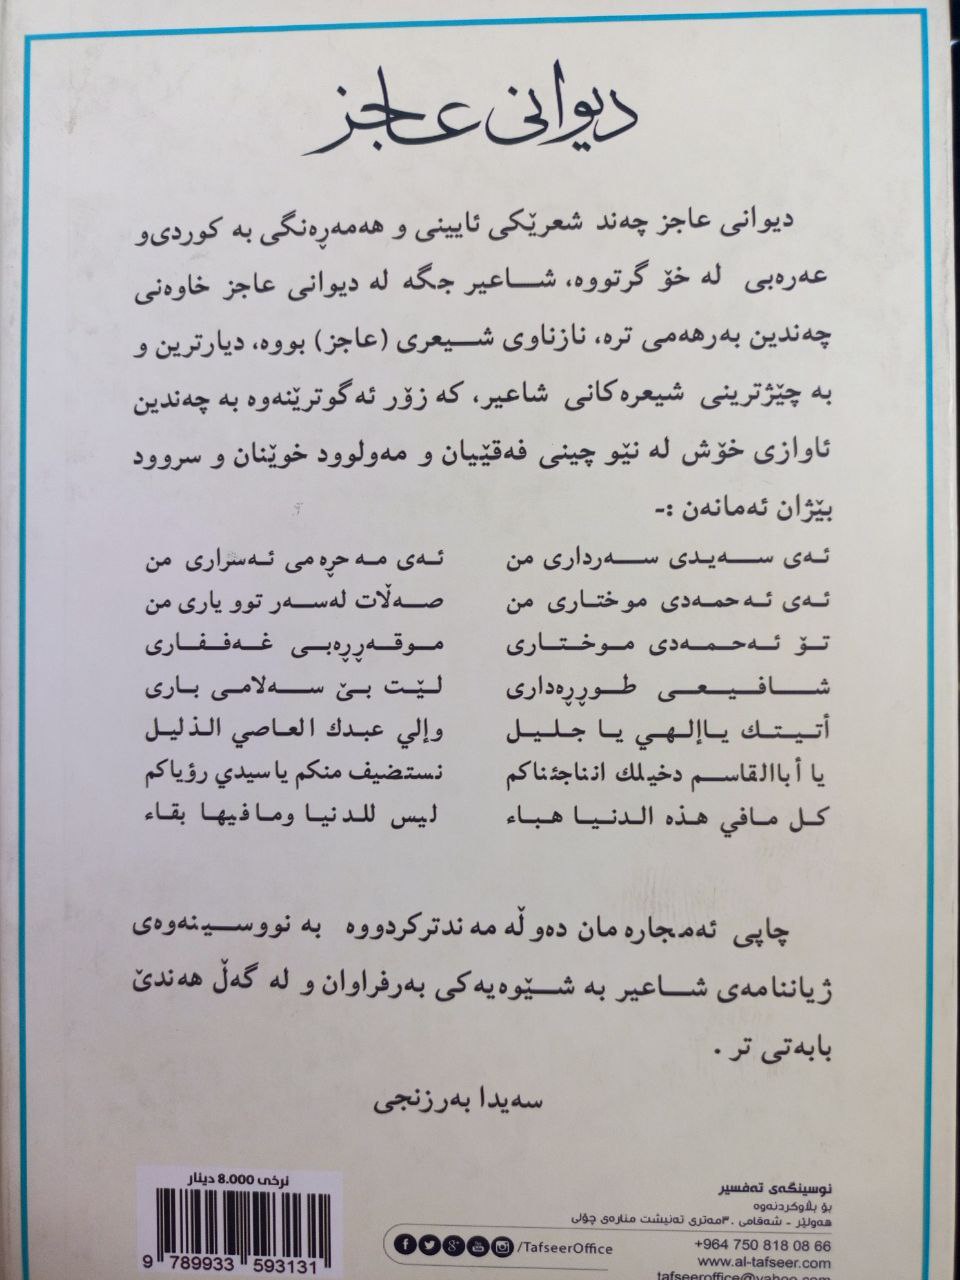 دیوانی عاجز
دیوانی عاجز چەند شعرێکی ئایینی و هەمەڕەنگی بە کوردی‌و
عەرەبی لە خۆ گرتووە، شاعیر جگە لە دیوانی عاجز خاوەنی
چەندین بەرهەمی ترە، نازناوی شیعری (عاجز) بووە، دیارترین و
بە چێژترینی شیعرەکانی شاعیر، کە زۆر ئەگوترێنەوە بە چەندین
ئاوازی خۆش لە نێو چینی فەقێییان و مەولوود خوێنان و سروود
بێژان ئەمانەن :-
ئەی سەیدی سەرداری من ئەی مەحرەمی ئەسراری من
ئەی ئەحمەدی موختاری من صەڵات لەسەر توو یاری من
تۆ ئەحمەدی موختاری موقەڕڕەبی غەففاری
شافیعی طوڕڕەداری لێت بێ سەلامی باری
أتيتك ياإلهي يا جليل وإلي عبدك العاصي الذليل
يا أباالقاسم دخيلك انناجئناكم نستضيف منكم ياسيدي رؤياكم
كل مافي هذه الدنيا هباء ليس للدنيا ومافيها بقاء
چاپی ئەمجارەمان دەوڵەمەندترکردووە بە نووسینەوەی
ژیاننامەی شاعیر بە شێوەیەکی بەرفراوان و لە گەڵ هەندێ
بابەتی تر .
سەیدا بەرزنجی
نرخی 8.000 دینار
9 789933 593131
نوسینگەی تەفسیر
بۆ بڵاوکردنەوە
هەولێر - شەقامی ٣٠مەتری تەنیشت منارەی چۆلی
/TafseerOffice
+964 750 818 08 66
www.al-tafseer.com
tafseeroffice@yahoo.com